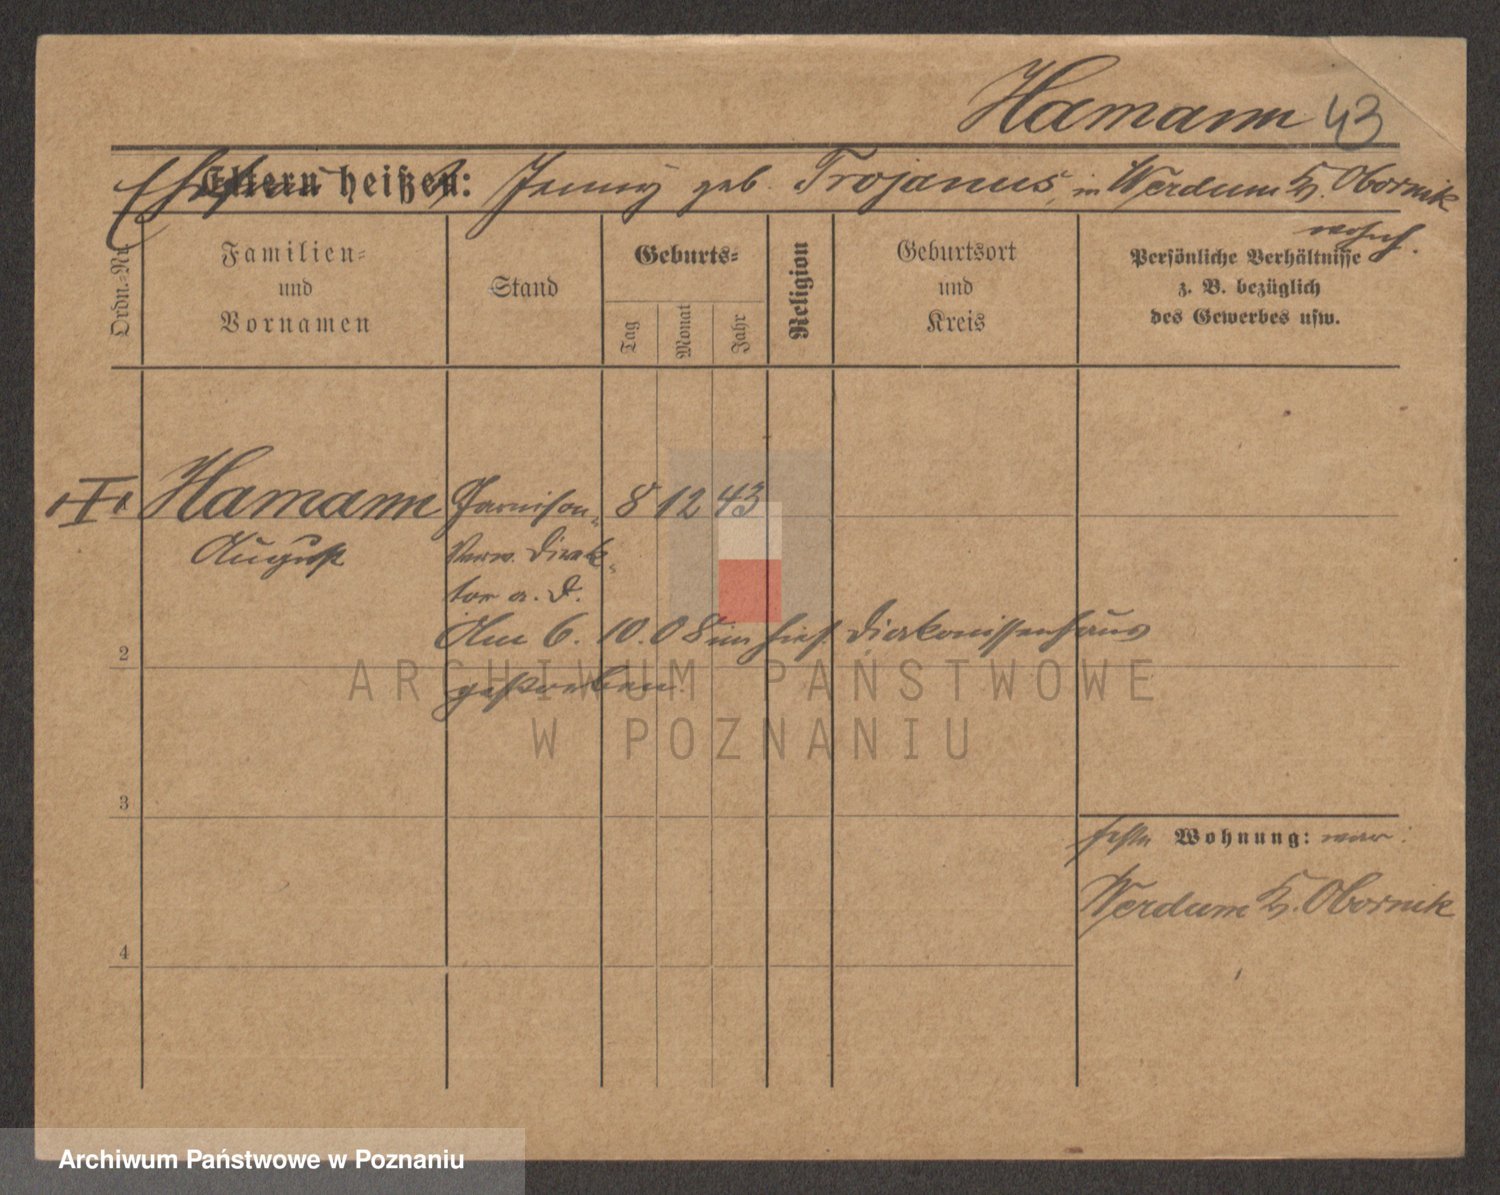 Hamann 43
Ehefrau Eltern heißen: Jenny geb. Trojanus, in Werdum Kr. Obornik
wohnh.
Ordn.-Nr.
Familien-
und
Vornamen
Stand
Geburts-
Tag
Monat
Jahr
Religion
Geburtsort
und
Kreis
Persönliche Verhältnisse
z. B. bezüglich
des Gewerbes usw.
Hamann Garnison- 8 12 43
August Verw. Direk-
tor a. D.
Am 6. 10. 08 im hies. Diakonissenhaus
2
gestorben.
ARCHIWUM PAŃSTWOWE
W POZNANIU
3
Wohnung: war:
Werdum Kr. Obornik
4
Archiwum Państwowe w Poznaniu